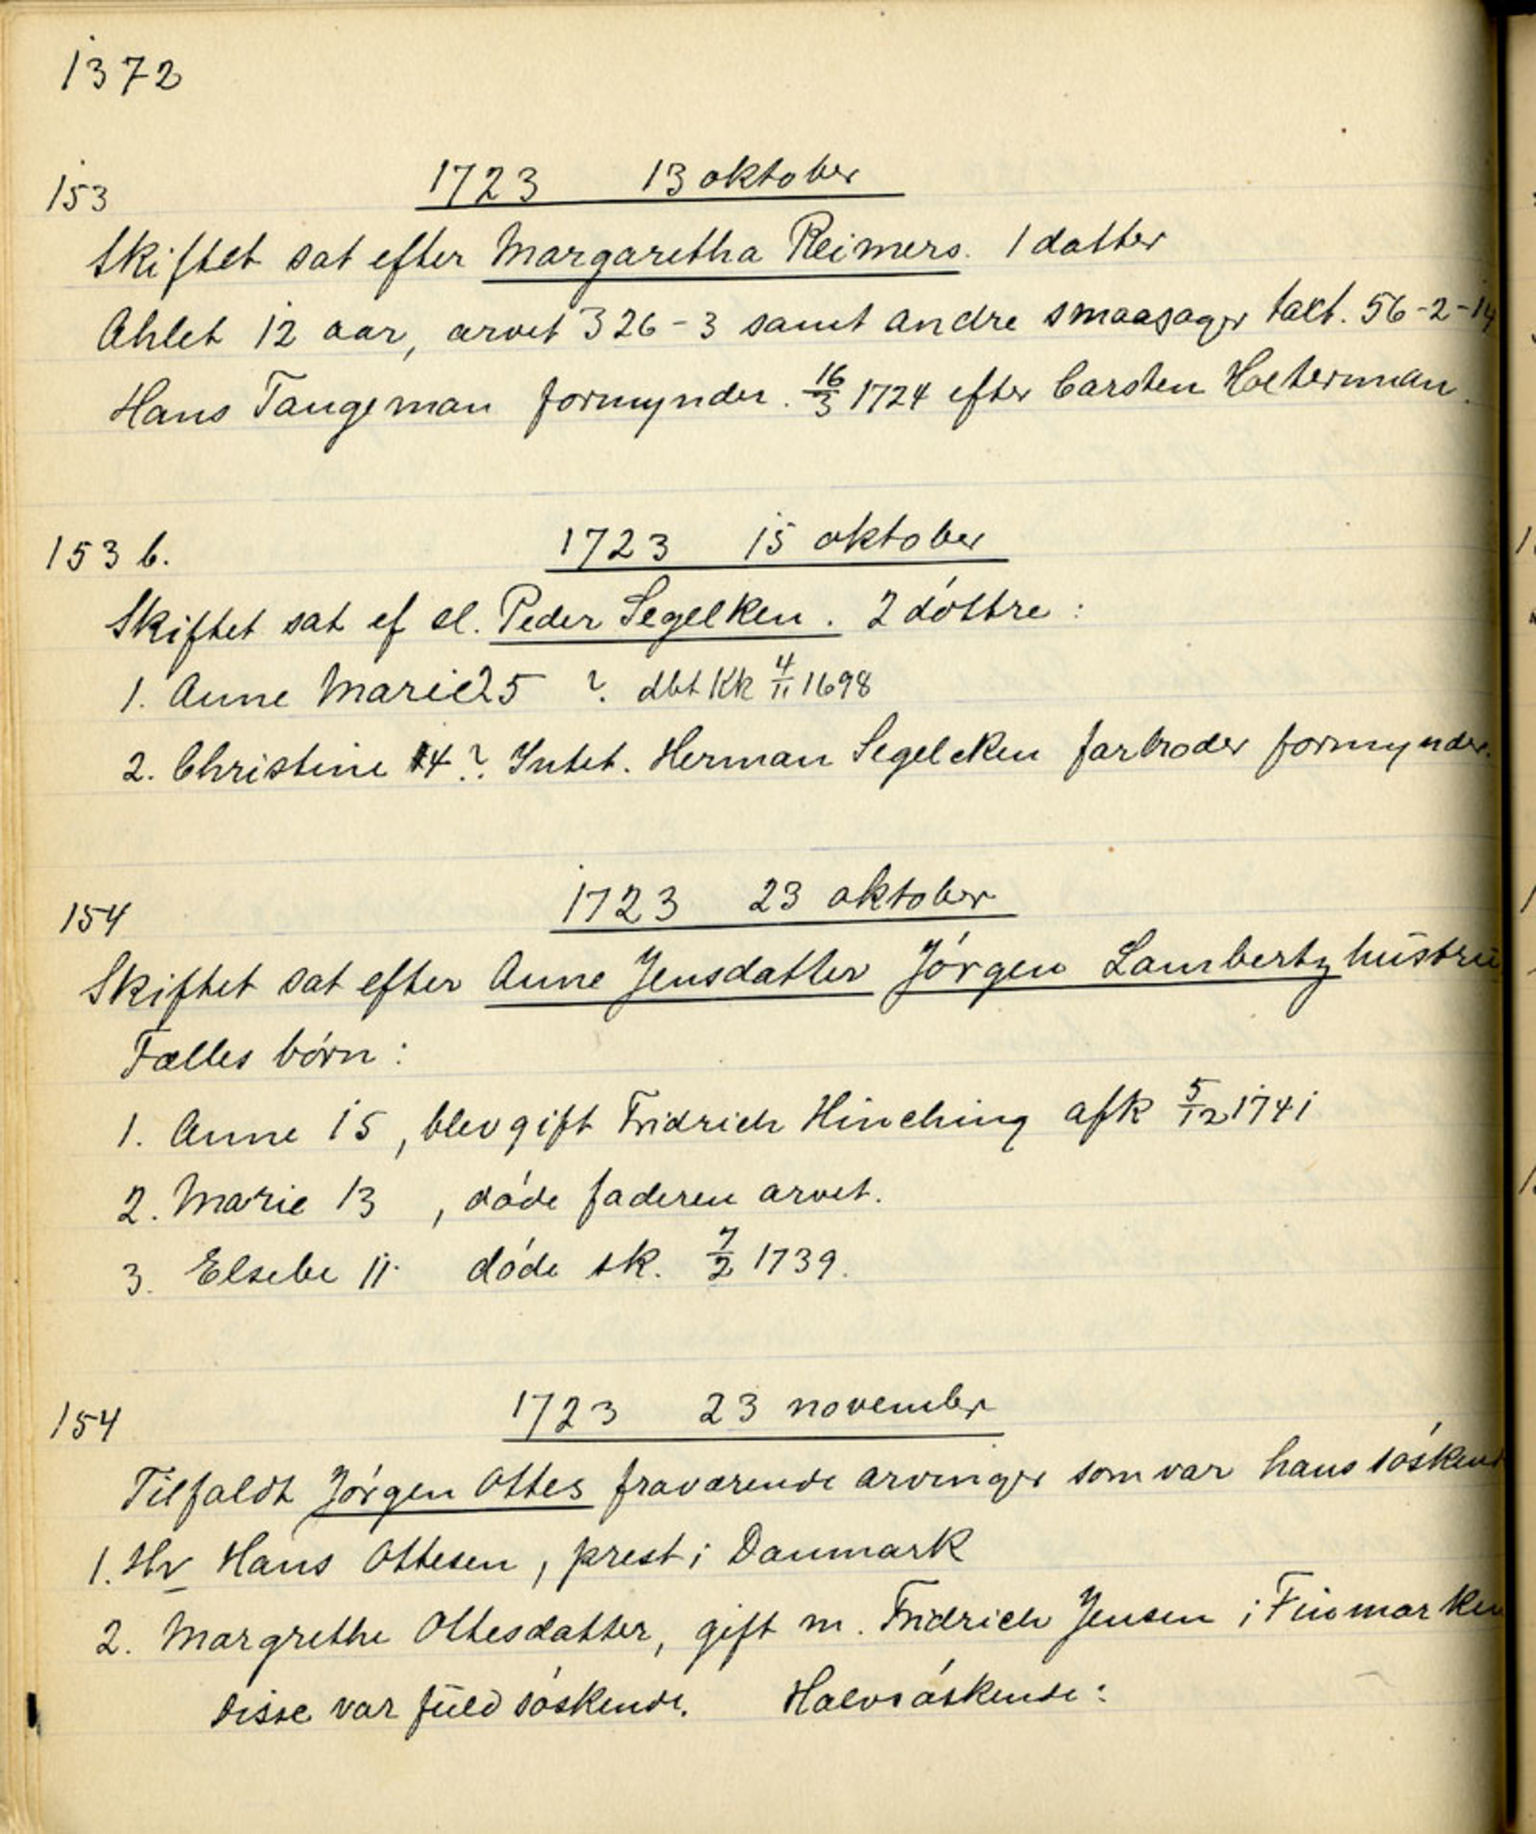 1372
153 1723 13 oktober
Skiftet sat efter Margaretha Reimers. 1 datter
Ahlet 12 aar, arvet 326-3 samt andre smaasager taxt. 56-2-14
Hans Tangeman formynder. 16/3 1724 efter Carsten Holterman.
153 b. 1723 15 oktober
Skiftet sat ef sl. Peder Segelken. 2 dóttre:
1. Anne Marie 25 ? dbt Kk 4/11 1698
2. Christine 14? Intet. Herman Segelcken farbroder formynder.
154 1723 23 oktober
Skiftet sat efter Anne Jensdatter Jórgen Lambertz hustru
Fælles bórn:
1. Anne 15, blev gift Fridrich Hinching afk 5/12 1741
2. Marie 13, dóde faderen arvet.
3. Elsebe 11. dóde sk. 7/2 1739.
154 1723 23 november
Tilfaldt Jórgen Ottes fraværende arvinger som var hans sóskend
1. Hr Hans Ottesen, prest i Danmark
2. Margrethe Ottesdatter, gift m. Fridrich Jensen i Finmarken
disse var fuld sóskende. Halvsóskende: